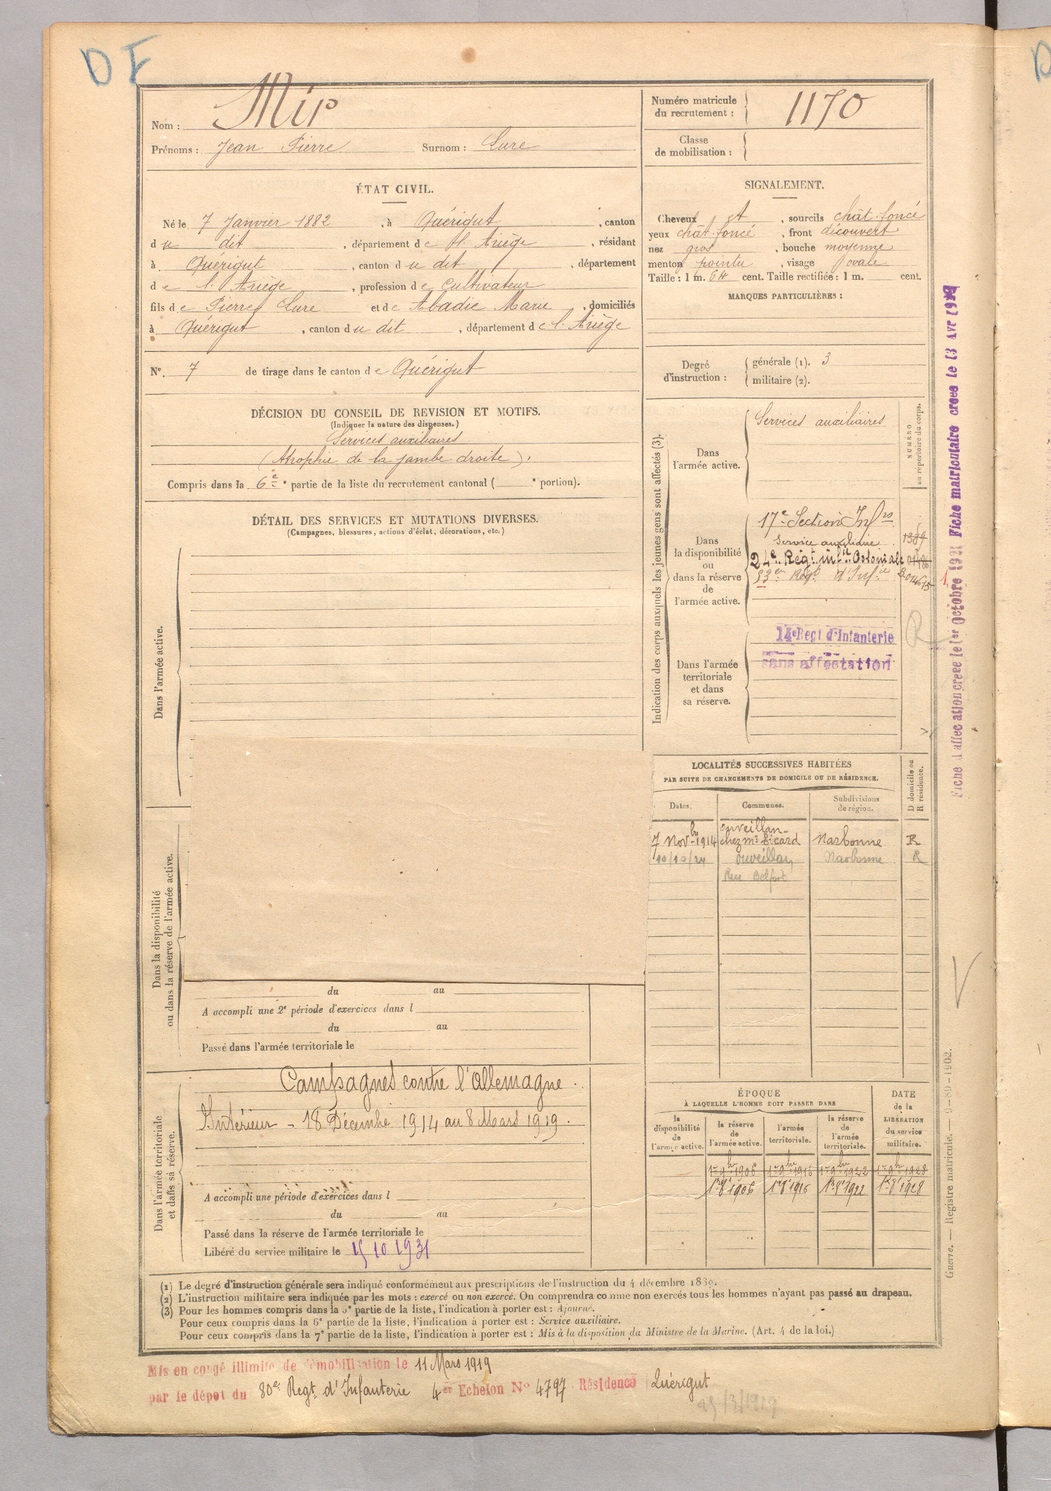 DF
Nom : Mir
Prénoms : Jean Pierre Surnom : Lure
ÉTAT CIVIL.
Né le 7 Janvier 1882, à Quérigut, canton
du dit, département de l'Ariège, résidant
à Quérigut, canton du dit, département
de l'Ariège, profession de Cultivateur
fils de Pierre Lure et de Abadie Marie, domiciliés
à Quérigut, canton du dit, département de l'Ariège
N° 7 de tirage dans le canton de Quérigut
DÉCISION DU CONSEIL DE REVISION ET MOTIFS.
(Indiquer la nature des dispenses.)
Services auxiliaires
(Atrophie de la jambe droite).
Compris dans la 6e partie de la liste du recrutement cantonal ( e portion).
DÉTAIL DES SERVICES ET MUTATIONS DIVERSES.
(Campagnes, blessures, actions d'éclat, décorations, etc.)
Dans l'armée active.
Dans la disponibilité
ou dans la réserve de l'armée active.
du au
A accompli une 2e période d'exercices dans l
du au
Passé dans l'armée territoriale le
Dans l'armée territoriale
et dans sa réserve.
Campagnes contre l'Allemagne.
Intérieur - 18 Décembre 1914 au 8 Mars 1919.
A accompli une période d'exercices dans l
du au
Passé dans la réserve de l'armée territoriale le
Libéré du service militaire le 15 10 1931
Numéro matricule
du recrutement : 1170
Classe
de mobilisation :
SIGNALEMENT.
Cheveux et, sourcils chât. foncé
yeux chât. foncé, front découvert
nez gros, bouche moyenne
menton pointu, visage ovale
Taille : 1 m. 64 cent. Taille rectifiée : 1 m. cent.
MARQUES PARTICULIÈRES :
Degré
d'instruction :
générale (1). 3
militaire (2).
Indication des corps auxquels les jeunes gens sont affectés (3).
NUMÉRO
au répertoire du corps.
Dans
l'armée active.
Services auxiliaires
Dans
la disponibilité
ou
dans la réserve de
l'armée active.
17e Section Infres
Service auxiliaire
24e Régt infie Coloniale
83e Régt d'Infie
Dans l'armée
territoriale
et dans
sa réserve.
14e Regt d'Infanterie
sans affectation
LOCALITÉS SUCCESSIVES HABITÉES
PAR SUITE DE CHANGEMENTS DE DOMICILE OU DE RÉSIDENCE.
Dates. Communes. Subdivisions de région. D domicile ou R résidence.
7 Novbre 1914 Ouveillan chez Mr Sicard Narbonne R
10/10/24 Ouveillan Rue Belfort Narbonne R
ÉPOQUE
À LAQUELLE L'HOMME DOIT PASSER DANS
la disponibilité de l'armée active. la réserve de l'armée active. l'armée territoriale. la réserve de l'armée territoriale. DATE de la LIBÉRATION du service militaire.
1er 9bre 1906 1er 9bre 1916 1er 9bre 1922 1er 9bre 1928
1er 8 1906 1er 8 1916 1er 8 1922 1er 8 1928
Fiche d'affectation creee le 1er Octobre 1921 Fiche matriculaire creee le 13 Avr 1929
Guerre. — Registre matricule. — 9-89-1902.
(1) Le degré d'instruction générale sera indiqué conformément aux prescriptions de l'instruction du 4 décembre 1889.
(2) L'instruction militaire sera indiquée par les mots : exercé ou non exercé. On comprendra comme non exercés tous les hommes n'ayant pas passé au drapeau.
(3) Pour les hommes compris dans la 5e partie de la liste, l'indication à porter est : Ajourné.
Pour ceux compris dans la 6e partie de la liste, l'indication à porter est : Service auxiliaire.
Pour ceux compris dans la 7e partie de la liste, l'indication à porter est : Mis à la disposition du Ministre de la Marine. (Art. 4 de la loi.)
Mis en congé illimité de démobilisation le 11 Mars 1919
par le dépôt du 80e Regt. d'Infanterie 4e Echelon N° 4797. Résidence Quérigut
25/3/1919